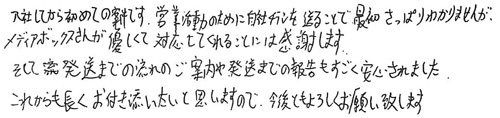 入社してから初めての業務です。営業活動のために自社チラシを送ることで最初さっぱりわかりませんが、
メディアボックスさんが優しくて対応してくれることには感謝します。
そして発送までの流れのご案内や発送までの報告もすごく安心されました。
これからも長くお付き添いたいと思いますので、今後ともよろしくお願い致します